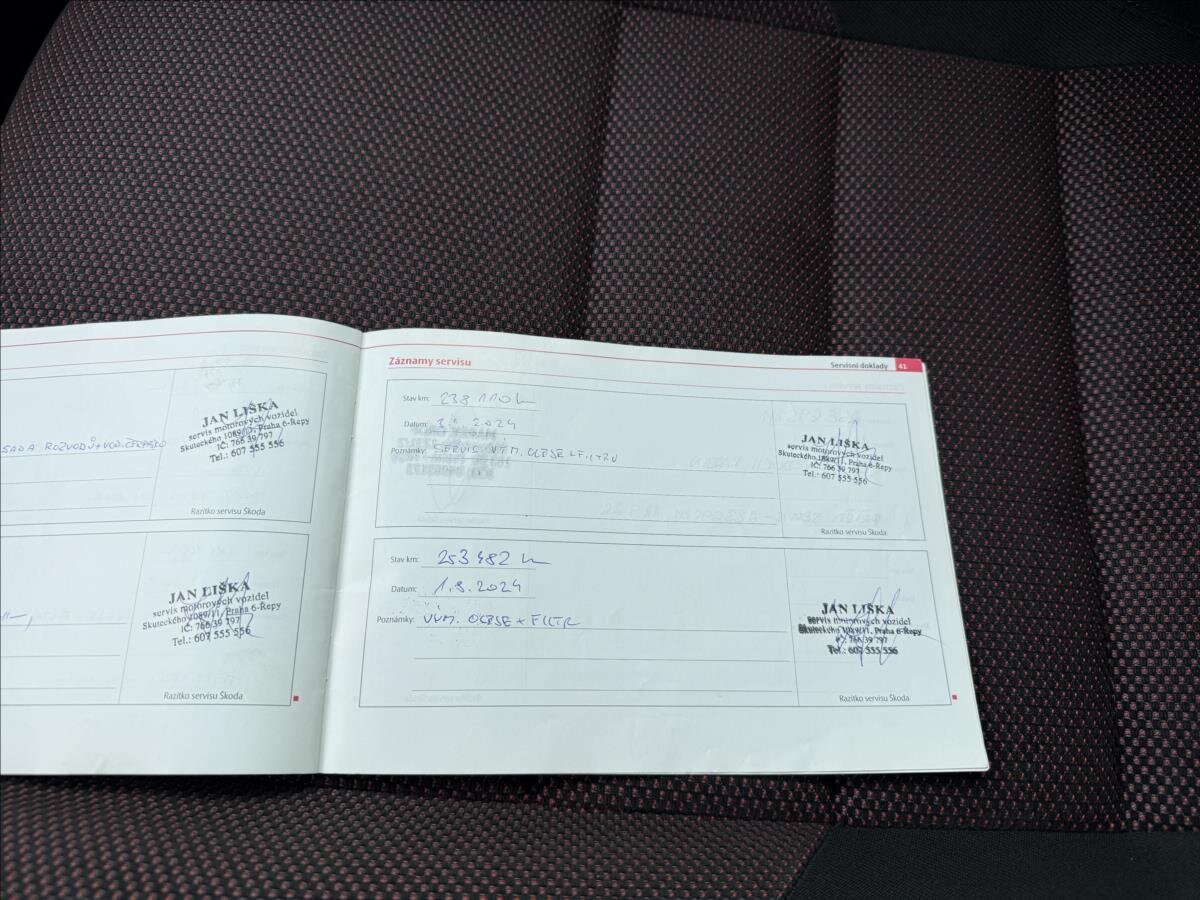 SADA ROZVODŮ + VOD. ČERPADLO
JAN LIŠKA
servis motorových vozidel
Skuteckého 1089/11, Praha 6-Řepy
IČ: 766 39 797
Tel.: 607 555 556
Razítko servisu Škoda
JAN LIŠKA
servis motorových vozidel
Skuteckého 1089/11, Praha 6-Řepy
IČ: 766 39 797
Tel.: 607 555 556
Razítko servisu Škoda
Záznamy servisu
Servisní doklady 41
Stav km: 238 110 km
Datum: 2024
Poznámky: SERVIS VÝM. OLEJE + FILTRŮ
JAN LIŠKA
servis motorových vozidel
Skuteckého 1089/11, Praha 6-Řepy
IČ: 766 39 797
Tel.: 607 555 556
Razítko servisu Škoda
Stav km: 253 482 km
Datum: 1.8.2024
Poznámky: VÝM. OLEJE + FILTR
JAN LIŠKA
servis motorových vozidel
Skuteckého 1089/11, Praha 6-Řepy
IČ: 766 39 797
Tel.: 607 555 556
Razítko servisu Škoda